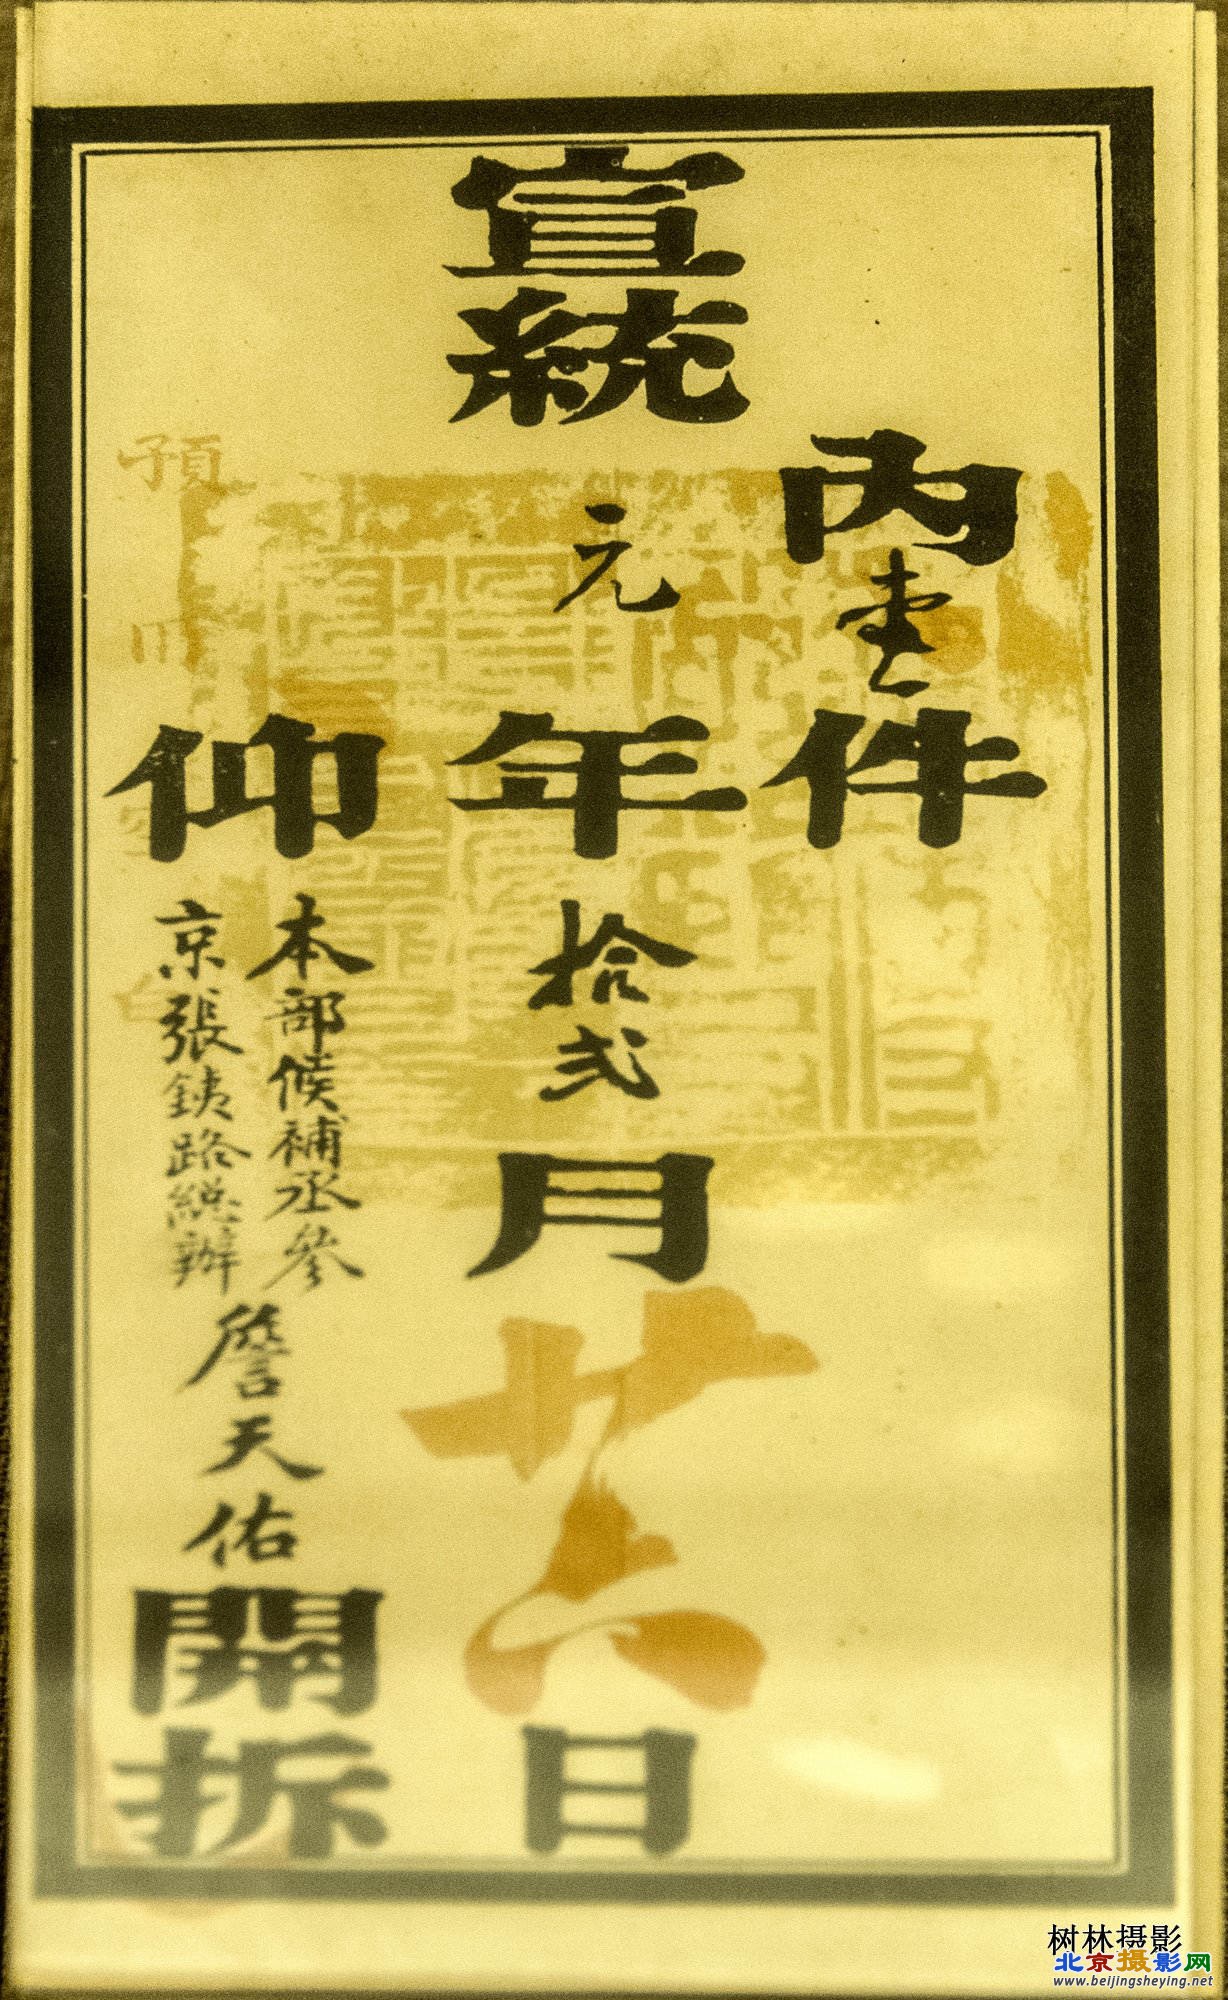 内壹件
宣統元年拾弍月廿六日
仰
本部候補丞參
京張銕路總辦
詹天佑
開拆
預印空白
树林摄影
北京摄影网
www.beijingsheying.net